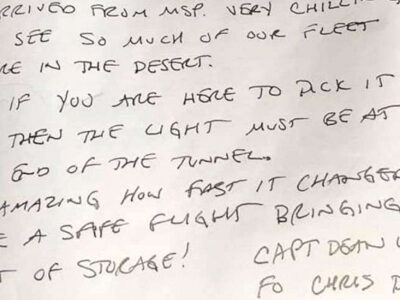 RRIVED FROM MSP. VERY CHILLI
SEE SO MUCH OF OUR FLEET
RE IN THE DESERT.
IF YOU ARE HERE TO PICK IT
THEN THE LIGHT MUST BE AT
END OF THE TUNNEL.
AMAZING HOW FAST IT CHANGED
E A SAFE FLIGHT BRINGING
T OF STORAGE!
CAPT DEAN
FO CHRIS D